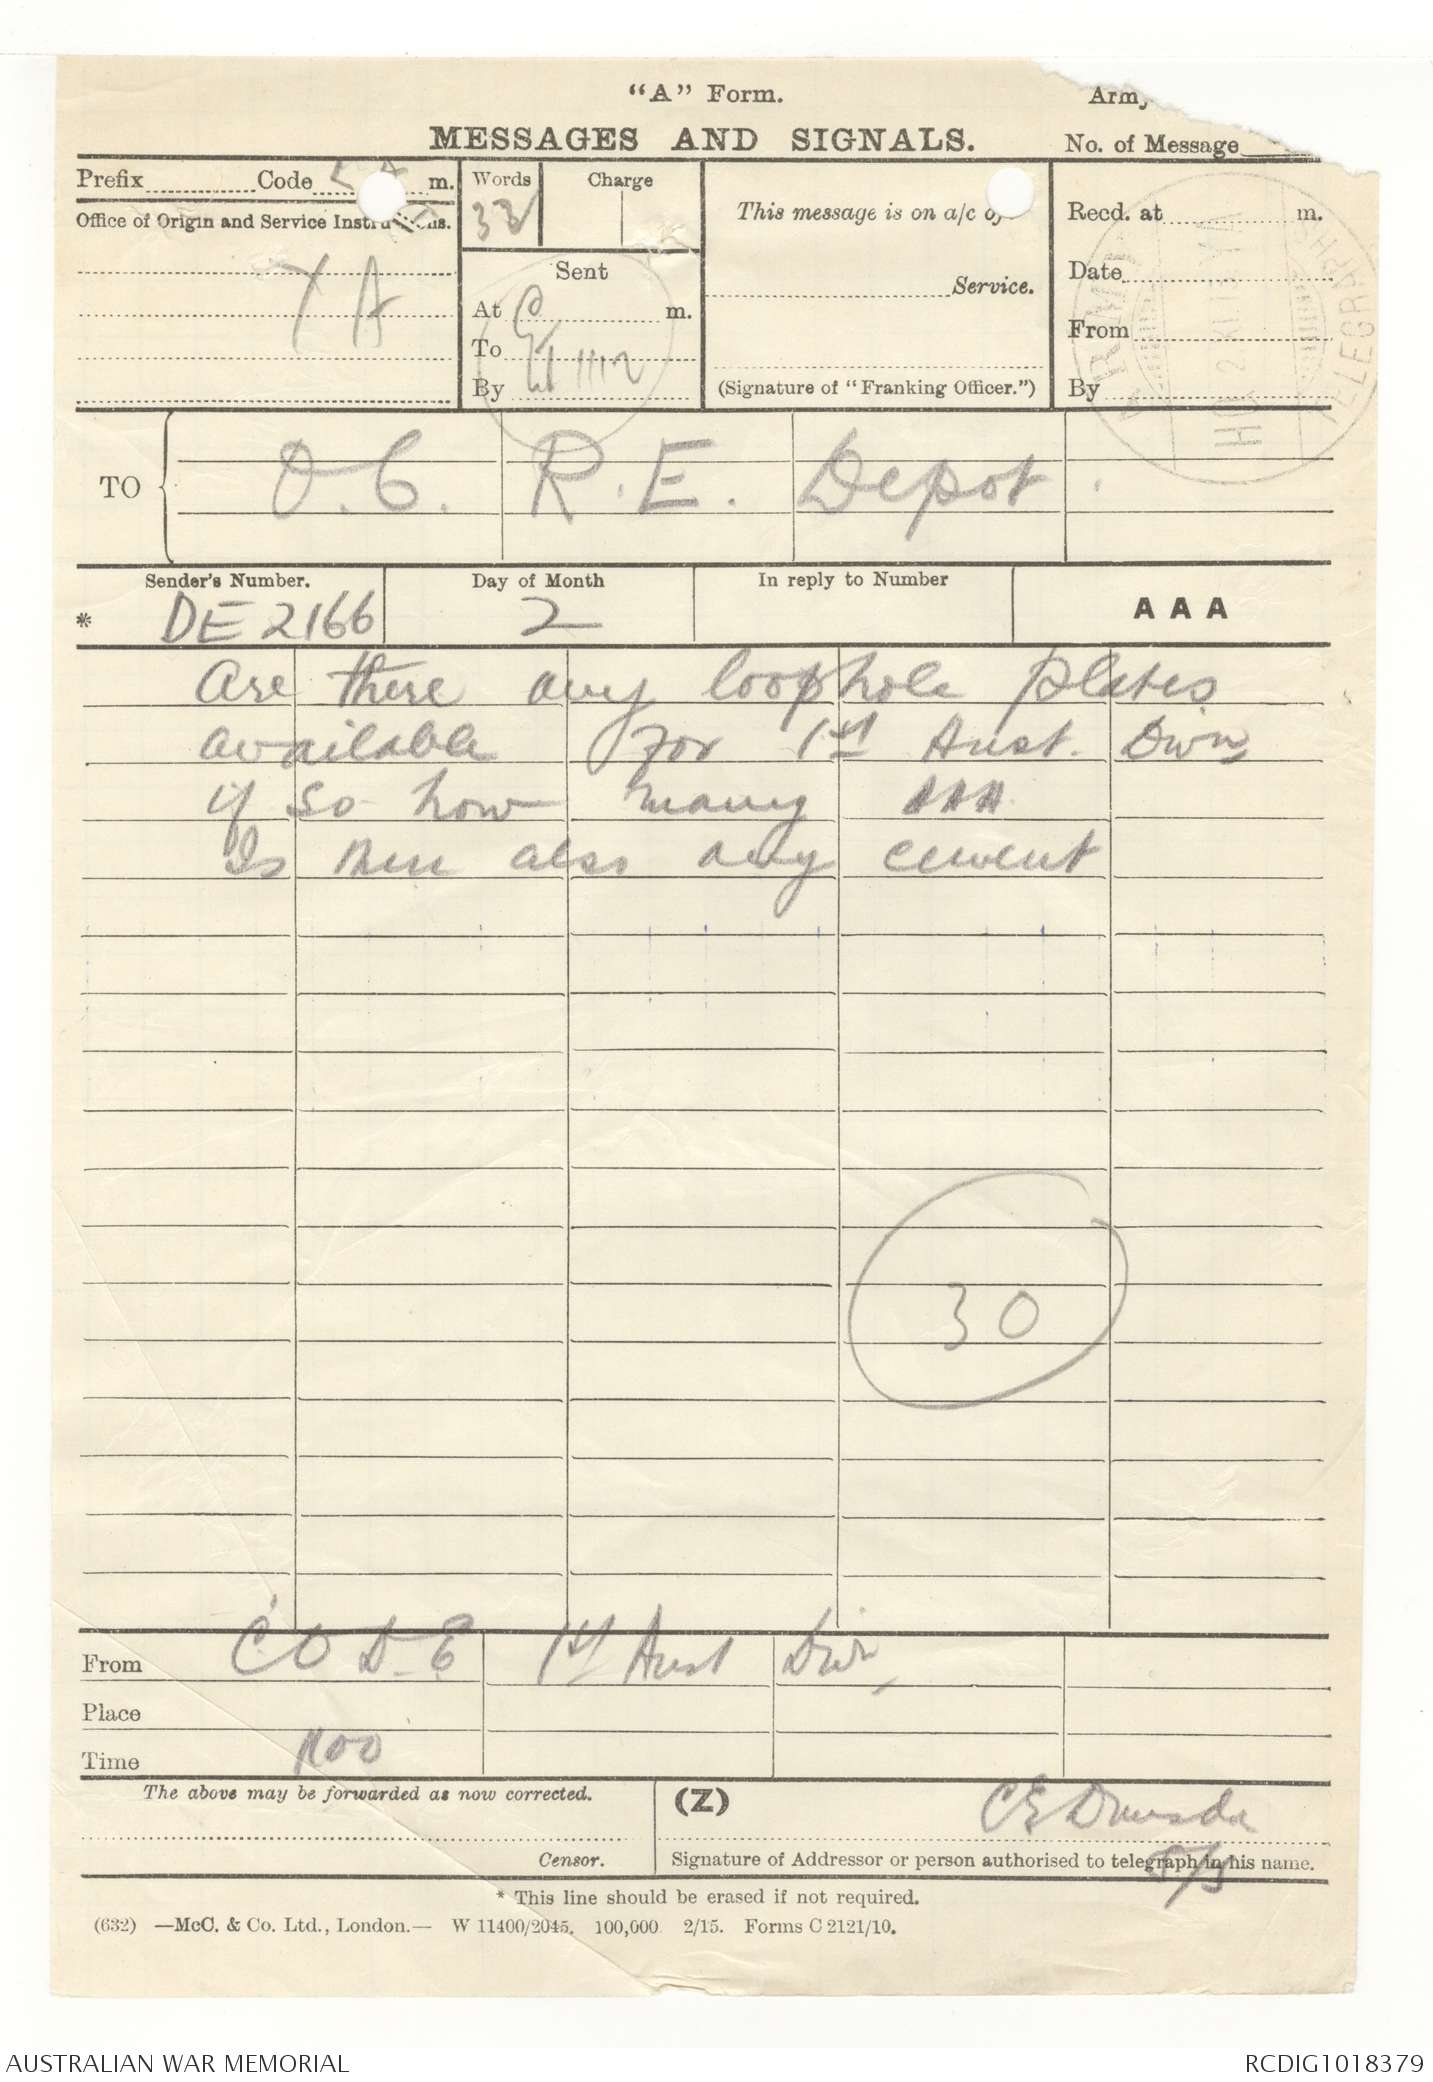 "A" Form.
Army
MESSAGES AND SIGNALS.
No. of Message
Prefix Code m.
Words
Charge
This message is on a/c of
Recd. at m.
Office of Origin and Service Instructions.
Sent
Service.
Date
YA
At m.
From
To
By
(Signature of "Franking Officer.")
By
ARMY TELEGRAPHS
TO
O.C. R.E. Depot.
Sender's Number.
Day of Month
In reply to Number
AAA
* DE 2166
2
Are there any loophole plates
available for 1st Aust. Divn
if so how many AAA
Is there also any cement
30
From C O D E 1st Aust Divn
Place
Time 1100
The above may be forwarded as now corrected.
(Z)
Censor.
Signature of Addressor or person authorised to telegraph in his name.
* This line should be erased if not required.
(632) —McC. & Co. Ltd., London.— W 11400/2045. 100,000 2/15. Forms C 2121/10.
AUSTRALIAN WAR MEMORIAL
RCDIG1018379